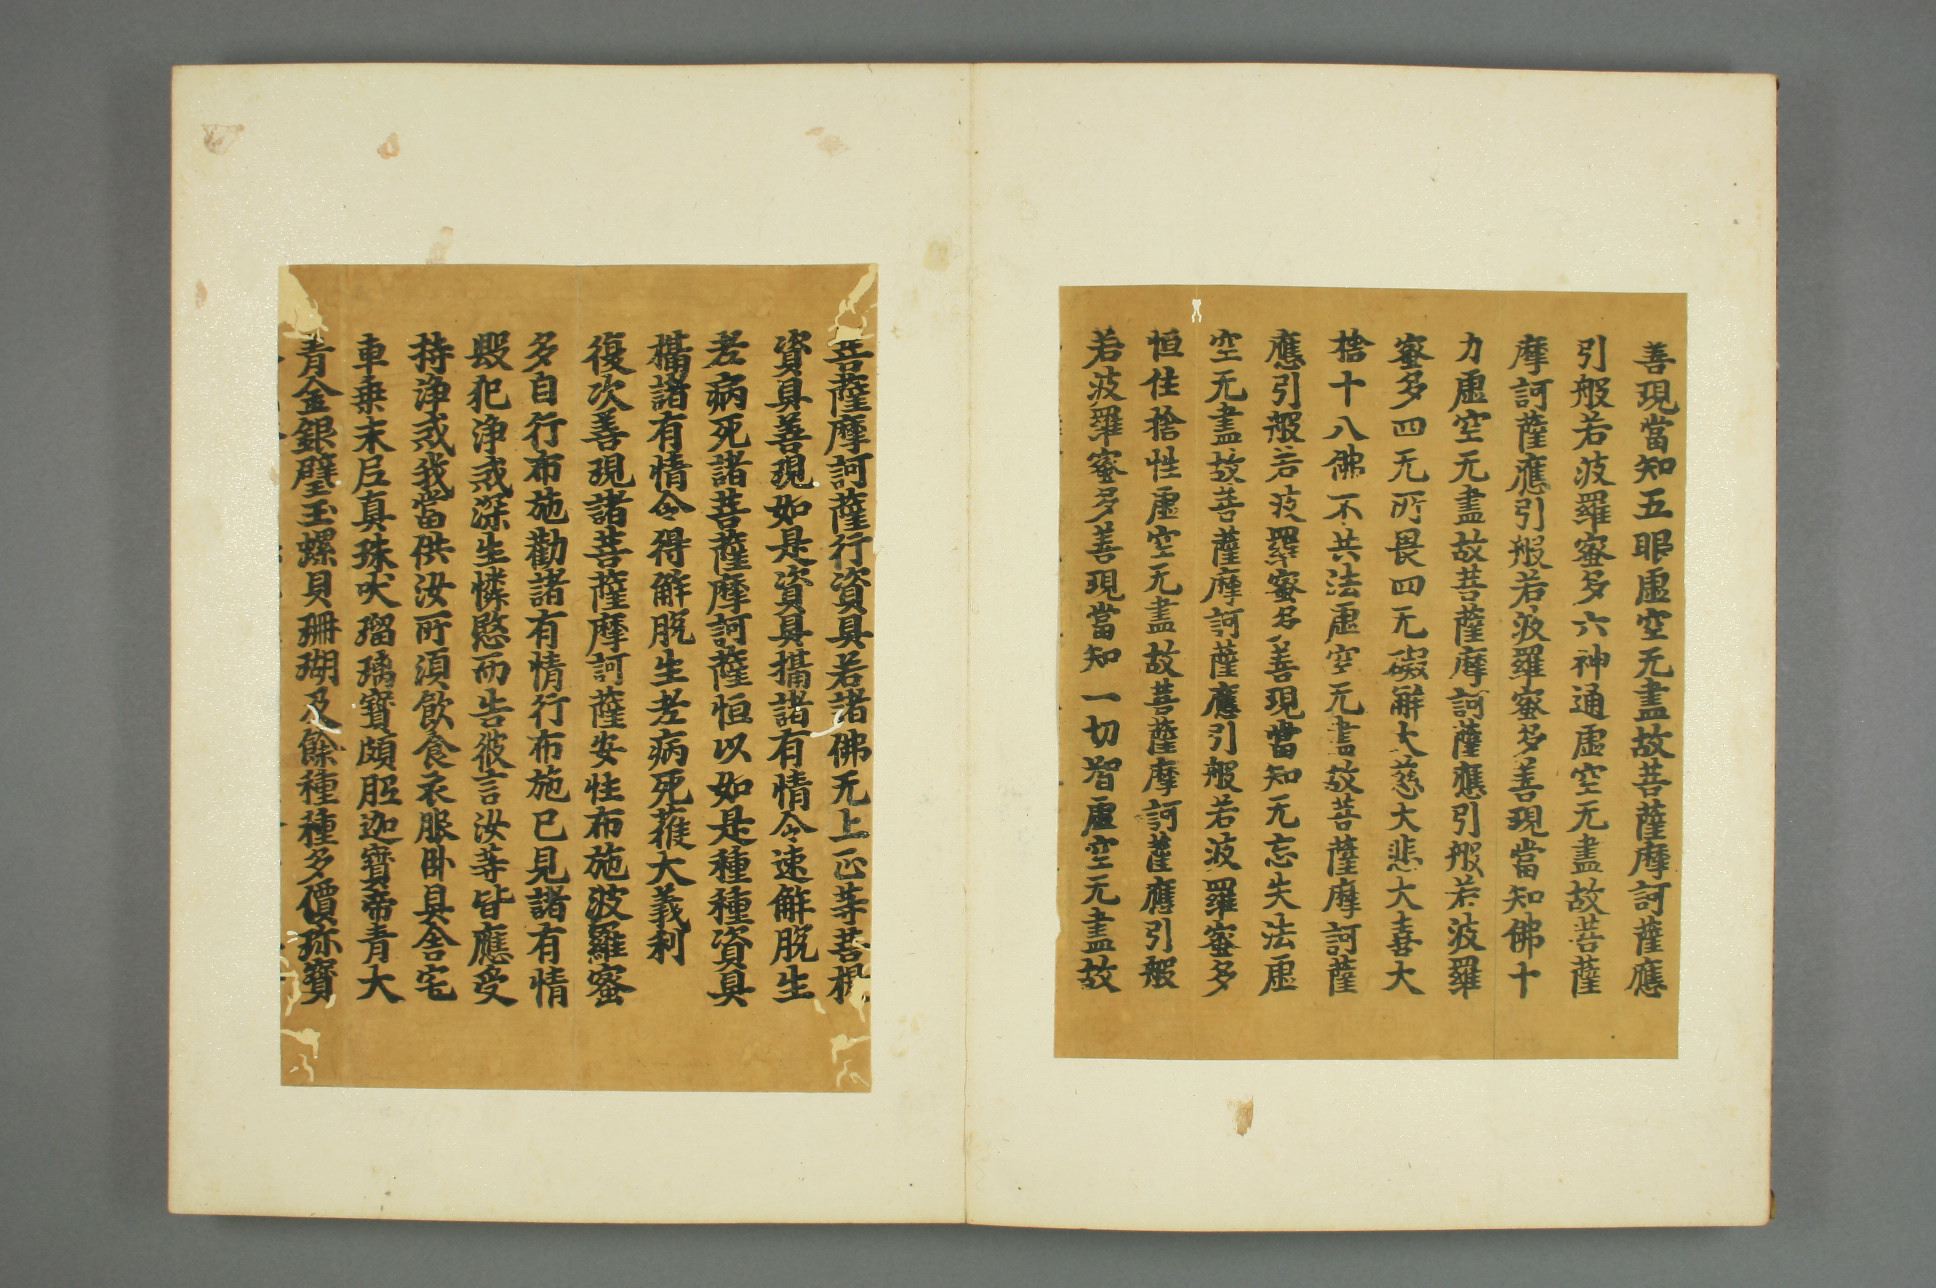 善現當知五眼虛空无盡故菩薩摩訶薩應
引般若波羅蜜多六神通虛空无盡故菩薩
摩訶薩應引般若波羅蜜多善現當知佛十
力虛空无盡故菩薩摩訶薩應引般若波羅
蜜多四无所畏四无礙解大慈大悲大喜大
捨十八佛不共法虛空无盡故菩薩摩訶薩
應引般若波羅蜜多善現當知无忘失法虛
空无盡故菩薩摩訶薩應引般若波羅蜜多
恒住捨性虛空无盡故菩薩摩訶薩應引般
若波羅蜜多善現當知一切智虛空无盡故
菩薩摩訶薩行資具若諸佛无上正等菩提
資具善現如是資具攝諸有情令速解脫生
老病死諸菩薩摩訶薩恒以如是種種資具
攝諸有情令得解脫生老病死獲大義利
復次善現諸菩薩摩訶薩安住布施波羅蜜
多自行布施勸諸有情行布施已見諸有情
毀犯淨戒深生憐愍而告彼言汝等皆應受
持淨戒我當供汝所須飲食衣服臥具舍宅
車乘末尼真珠吠瑠璃寶頗胝迦寶帝青大
青金銀璧玉螺貝珊瑚及餘種種多價珍寶